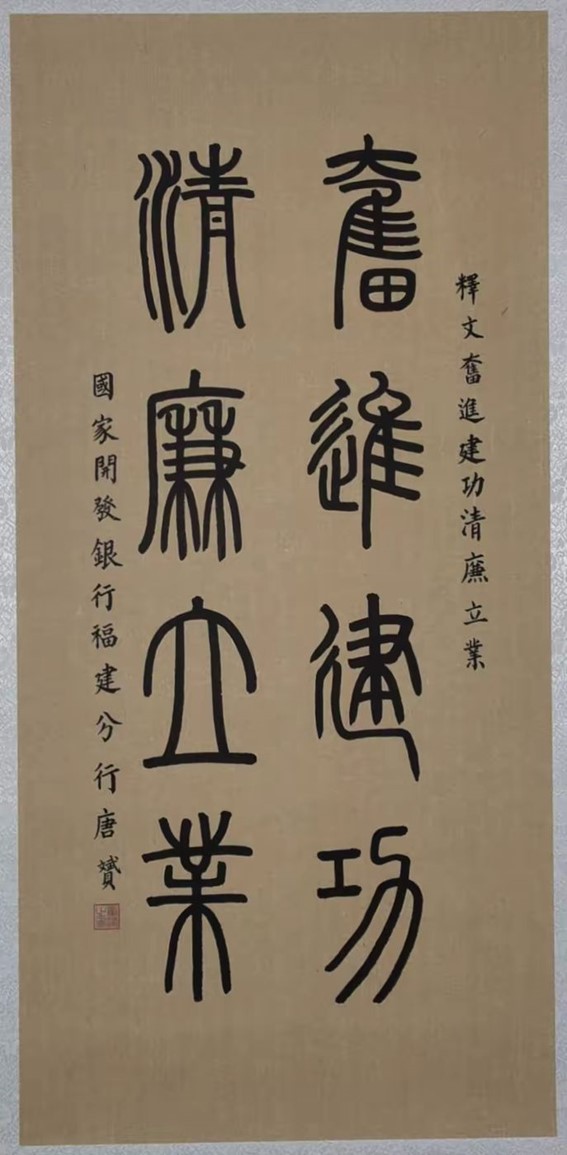 釋文奮進建功清廉立業
奮進建功
清廉立業
國家開發銀行福建分行唐贇